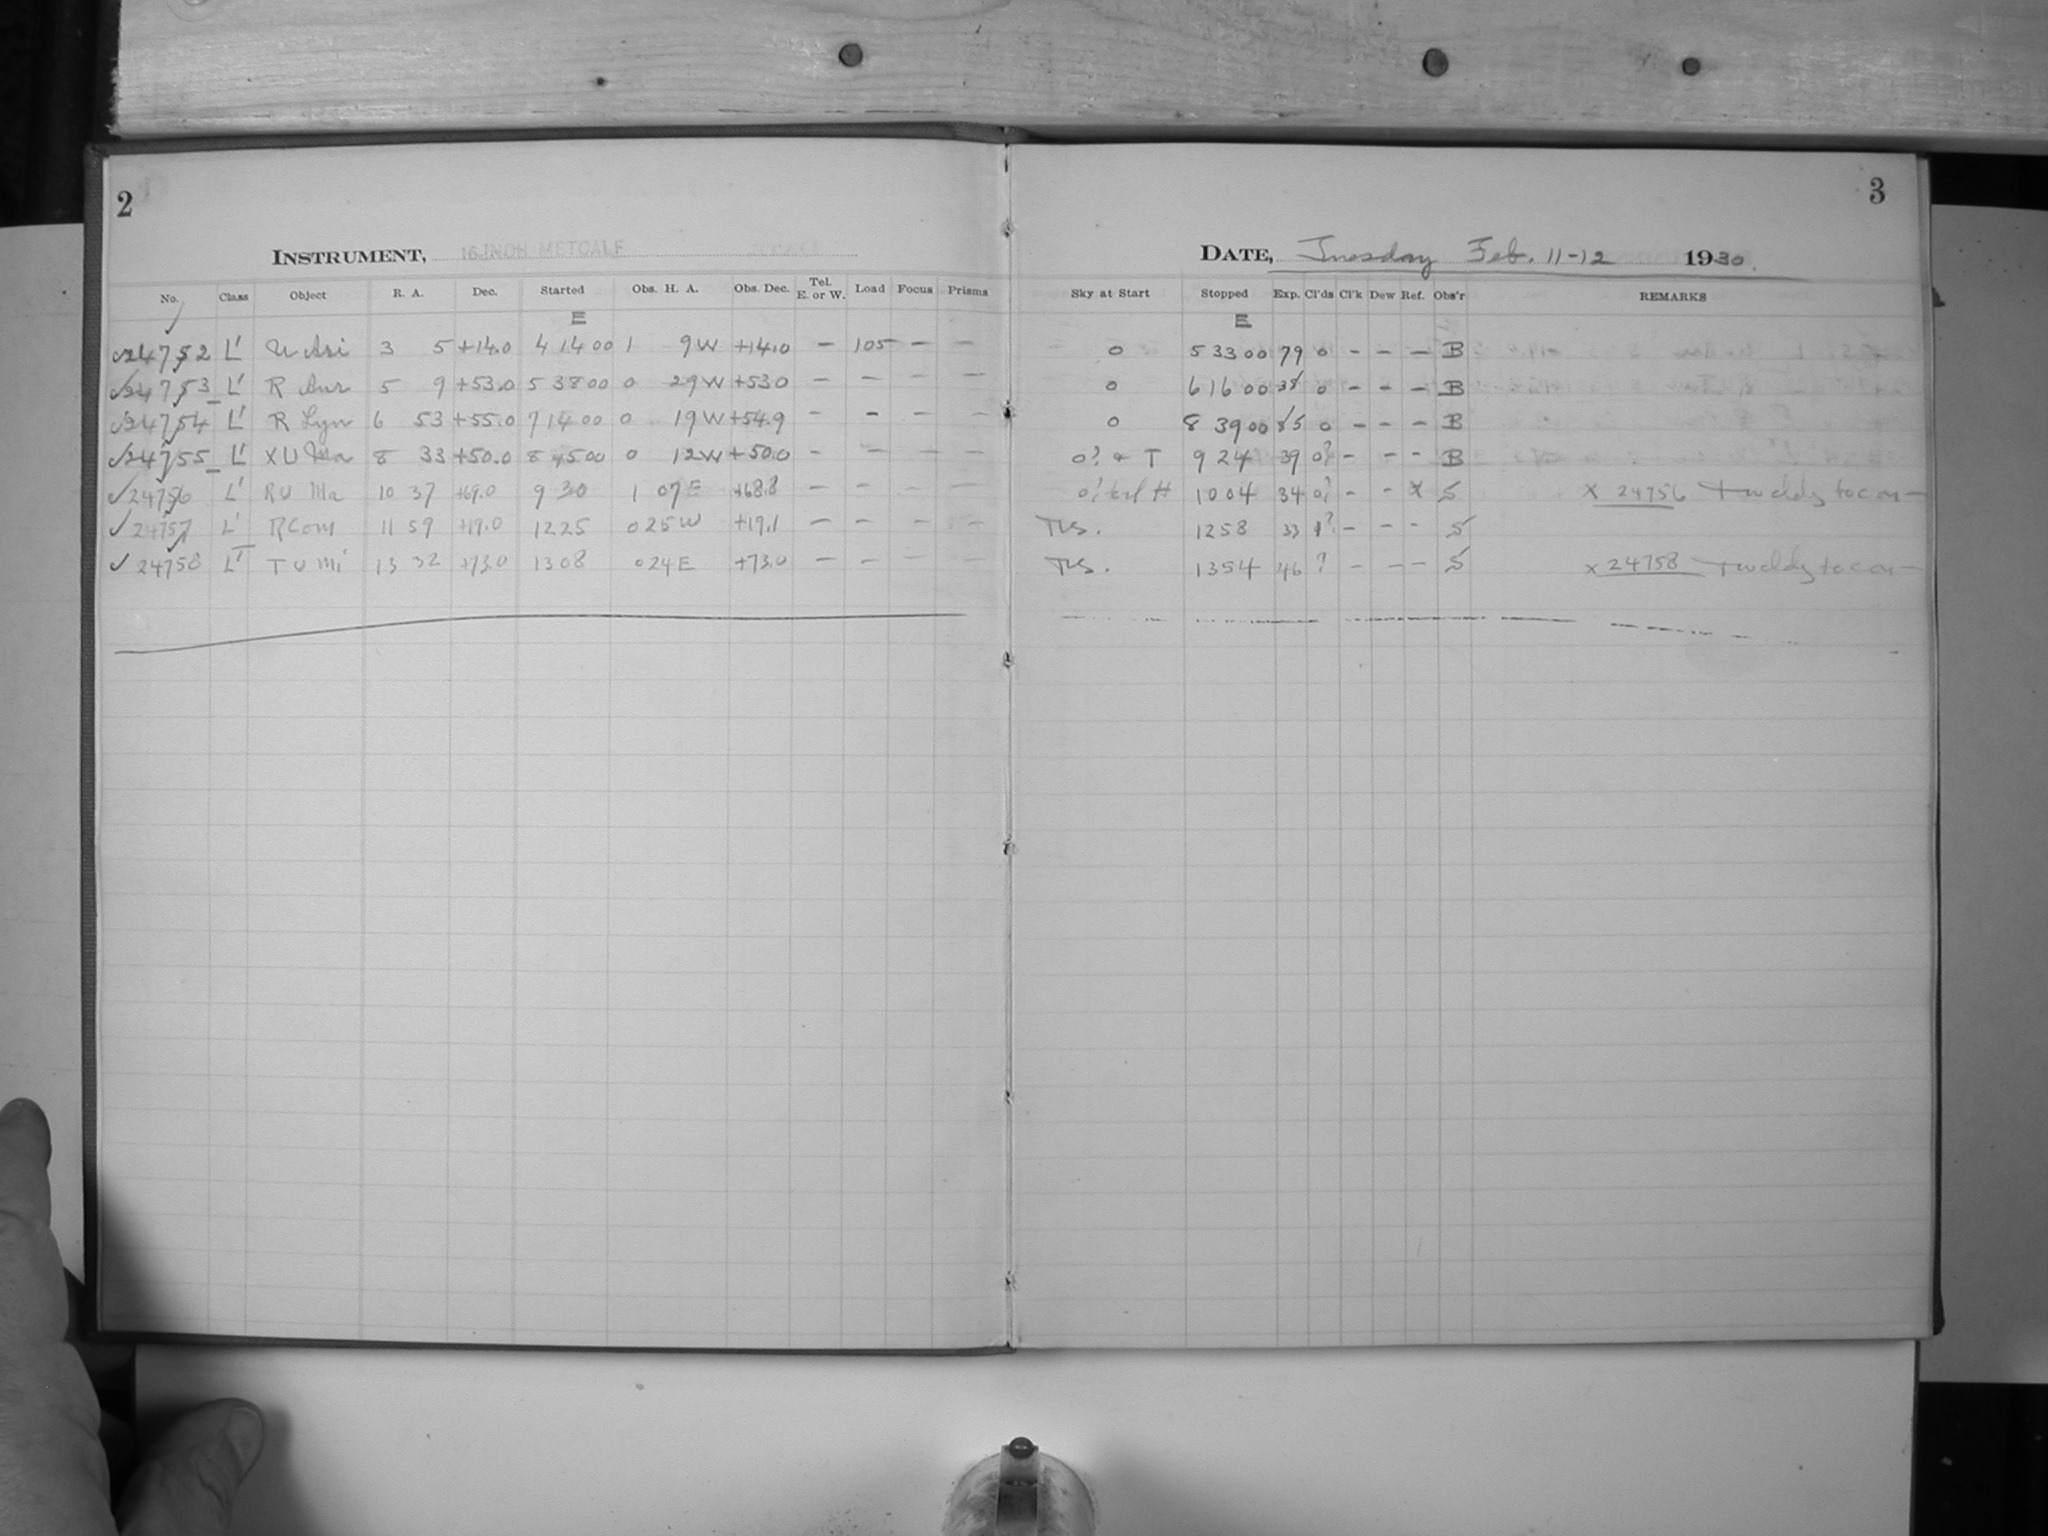 2
INSTRUMENT, 16-INCH METCALF
No. Class Object R. A. Dec. Started Obs. H. A. Obs. Dec. Tel. E. or W. Load Focus Prisms
E
24752 L' U Ari 3 5 +14.0 4 14 00 1 9W +14.0 – 105 – –
24753 L' R Aur 5 9 +53.0 5 38 00 0 29W +53.0 – – – –
24754 L' R Lyn 6 53 +55.0 7 14 00 0 19W +54.9 – – – –
24755 L' X U Ma 8 33 +50.0 8 45 00 0 12W +50.0 – – – –
24756 L' R U Ma 10 37 +69.0 9 30 1 07E +68.8 – – – –
24757 L' R Com 11 59 +19.0 12 25 0 25W +19.1 – – – –
24758 L' T U Mi 13 32 +73.0 13 08 0 24E +73.0 – –
3
DATE, Tuesday Feb. 11-12 1930.
Sky at Start Stopped Exp. Cl'ds Cl'k Dew Ref. Obs'r REMARKS
E
0 5 33 00 79 0 – – – B
0 6 16 00 38 0 – – – B
0 8 39 00 85 0 – – – B
0? + T 9 24 39 0? – – – B
10 04 34 0? – – X S X 24756
12 58 33 – – – S
13 54 46 ? – – – S X 24758